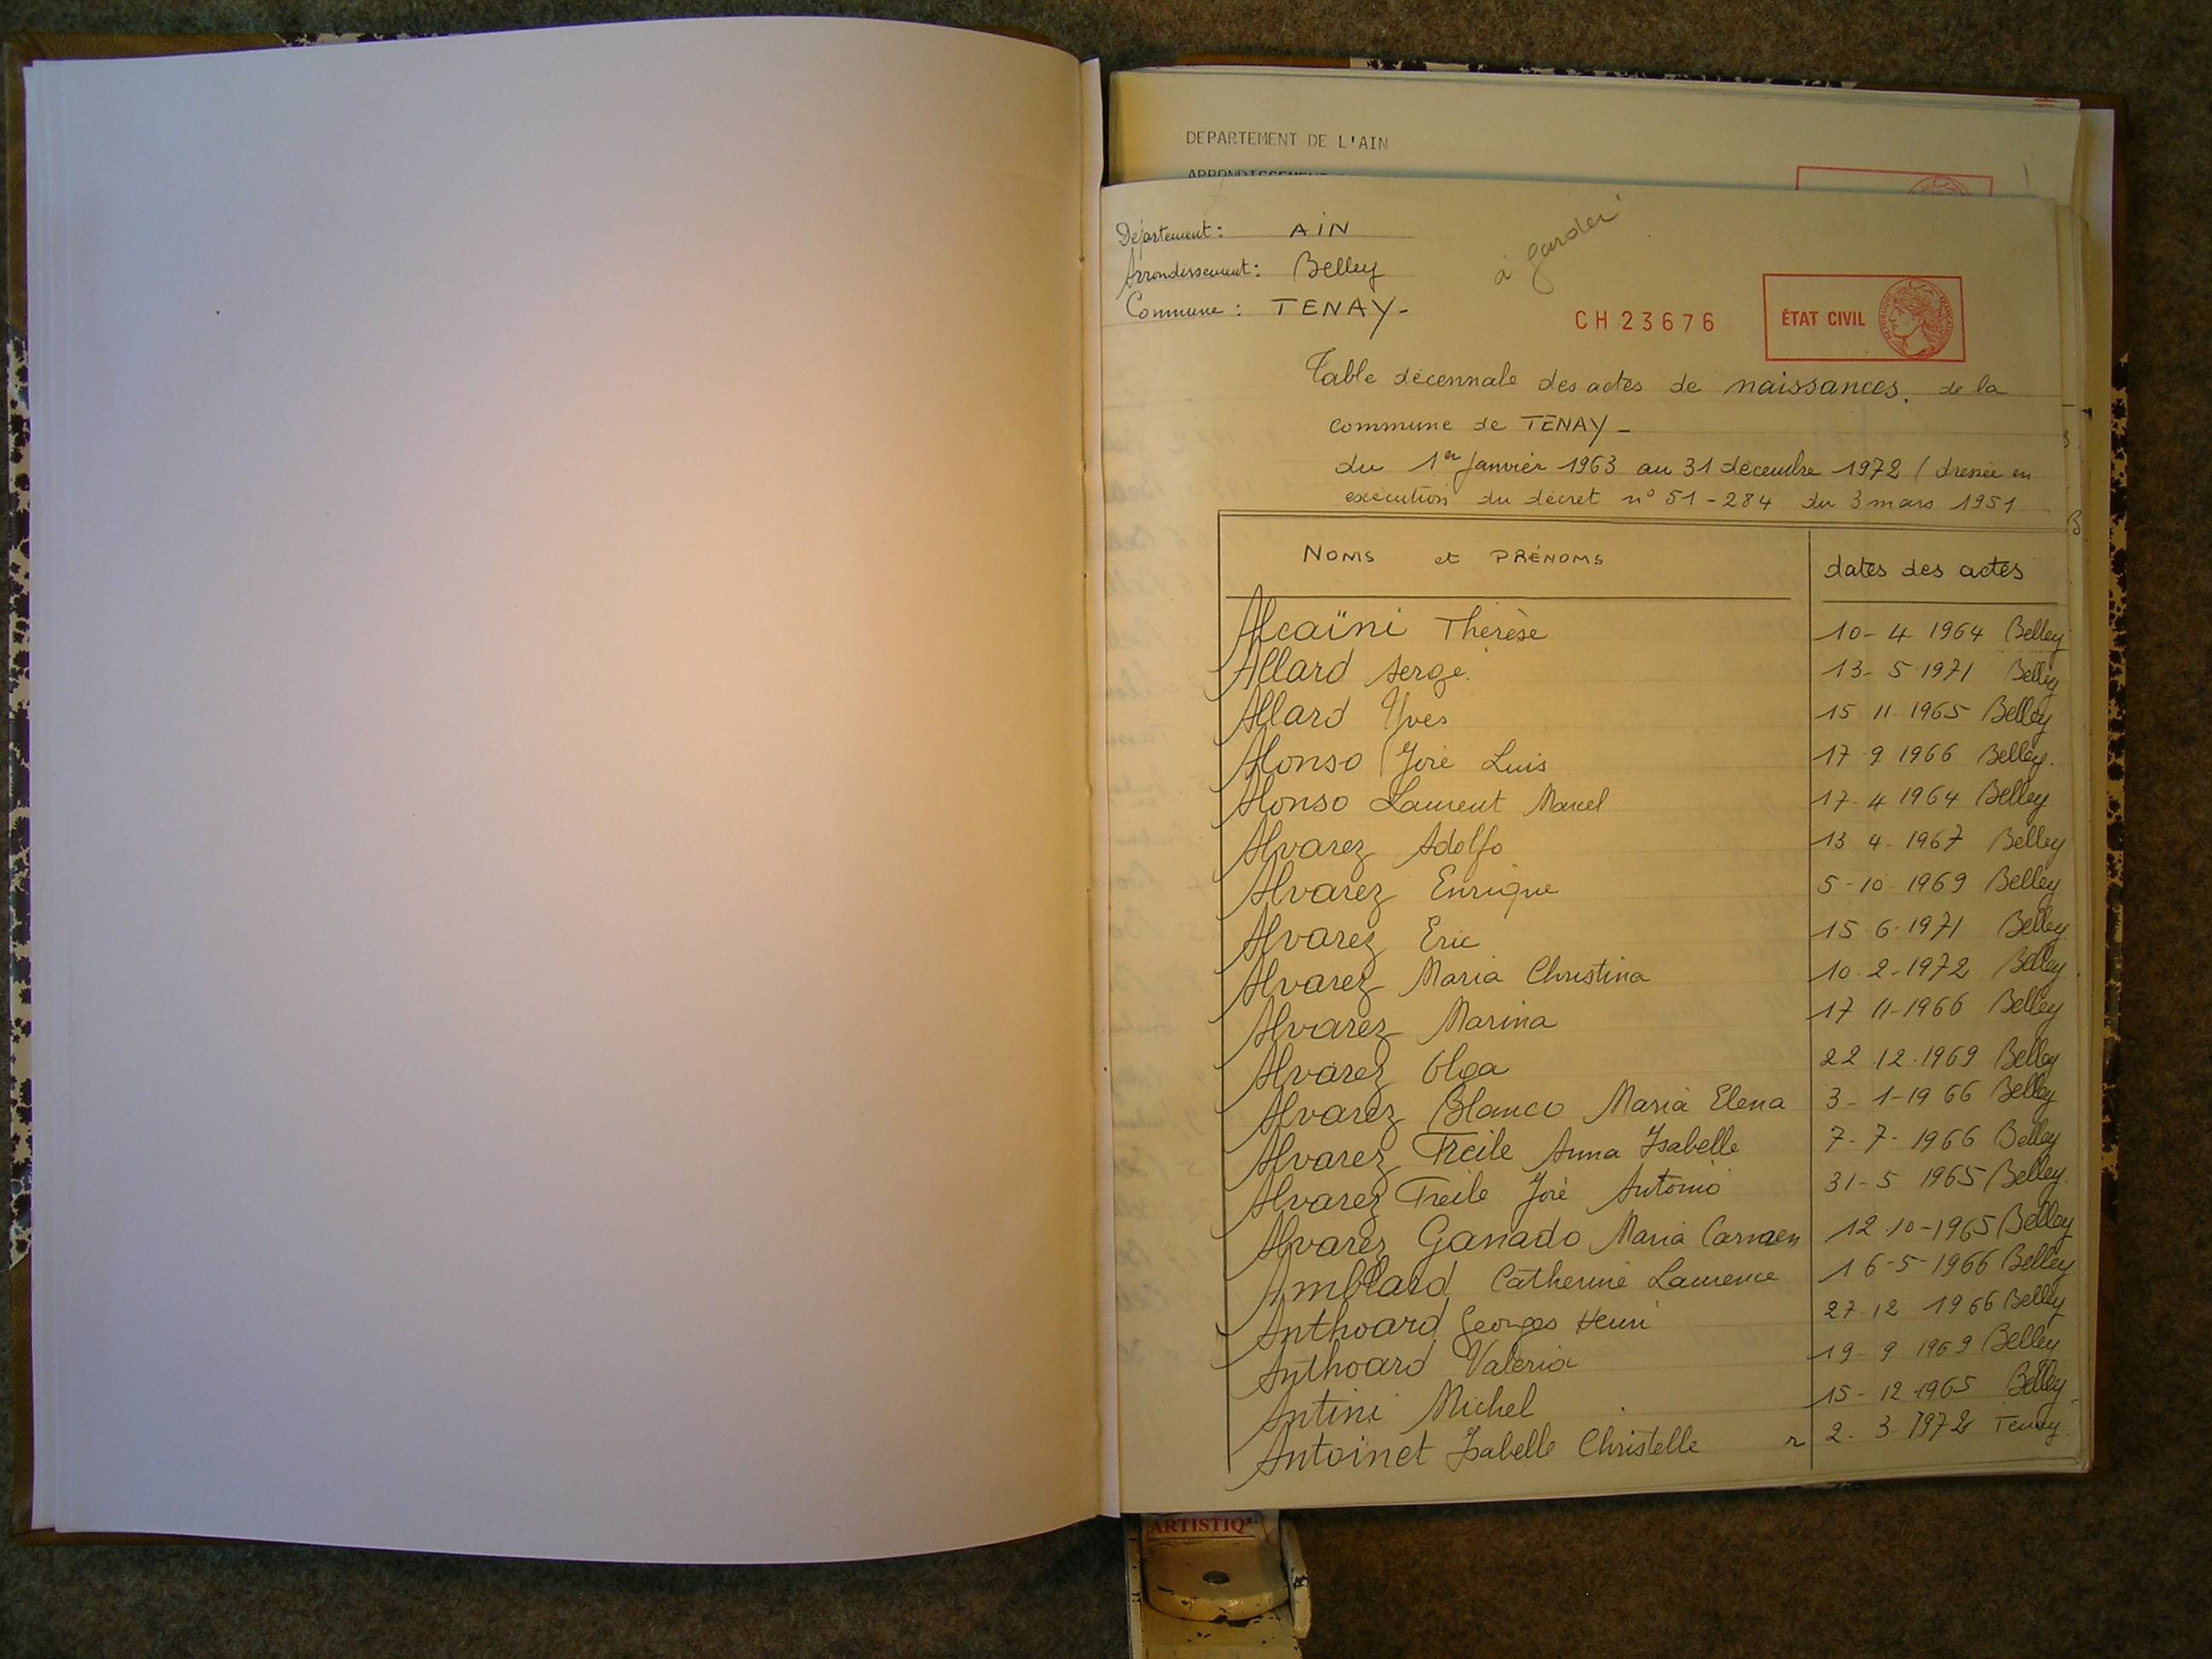 DEPARTEMENT DE L'AIN
Département: AIN
à garder
Arrondissement: Belley
Commune: TENAY-
CH 23676
ÉTAT CIVIL
Table décennale des actes de naissances. de la
commune de TENAY -
du 1er Janvier 1963 au 31 décembre 1972 ( dressée en
exécution du décret n° 51-284 du 3 mars 1951
NOMS et PRÉNOMS dates des actes
Alcaïni Thérèse 10-4 1964 Belley
Allard Serge. 13-5 1971 Belley
Allard Yves 15 11-1965 Belley
Alonso José Luis 17 9 1966 Belley.
Alonso Laurent Marcel 17-4 1964 Belley
Alvarez Adolfo 13 4-1967 Belley
Alvarez Enrique 5-10-1969 Belley
Alvarez Eric 15-6-1971 Belley
Alvarez Maria Christina 10-2-1972 Belley
Alvarez Marina 17 11-1966 Belley
Alvarez Olga 22.12.1969 Belley
Alvarez Blanco Maria Elena 3-1-1966 Belley
Alvarez Freile Anna Isabelle 7-7-1966 Belley
Alvarez Freile José Antonio 31-5 1965 Belley.
Alvarez Ganado Maria Carmen 12.10-1965 Belley
Amblard Catherine Laurence 16-5-1966 Belley
Anthoard Georges Henri 27.12 1966 Belley
Anthoard Valeria 19-9 1969 Belley
Antini Michel 15-12.1965 Belley
Antoinet Isabelle Christelle r 2-3-1972 Tenay.
ARTISTIQ